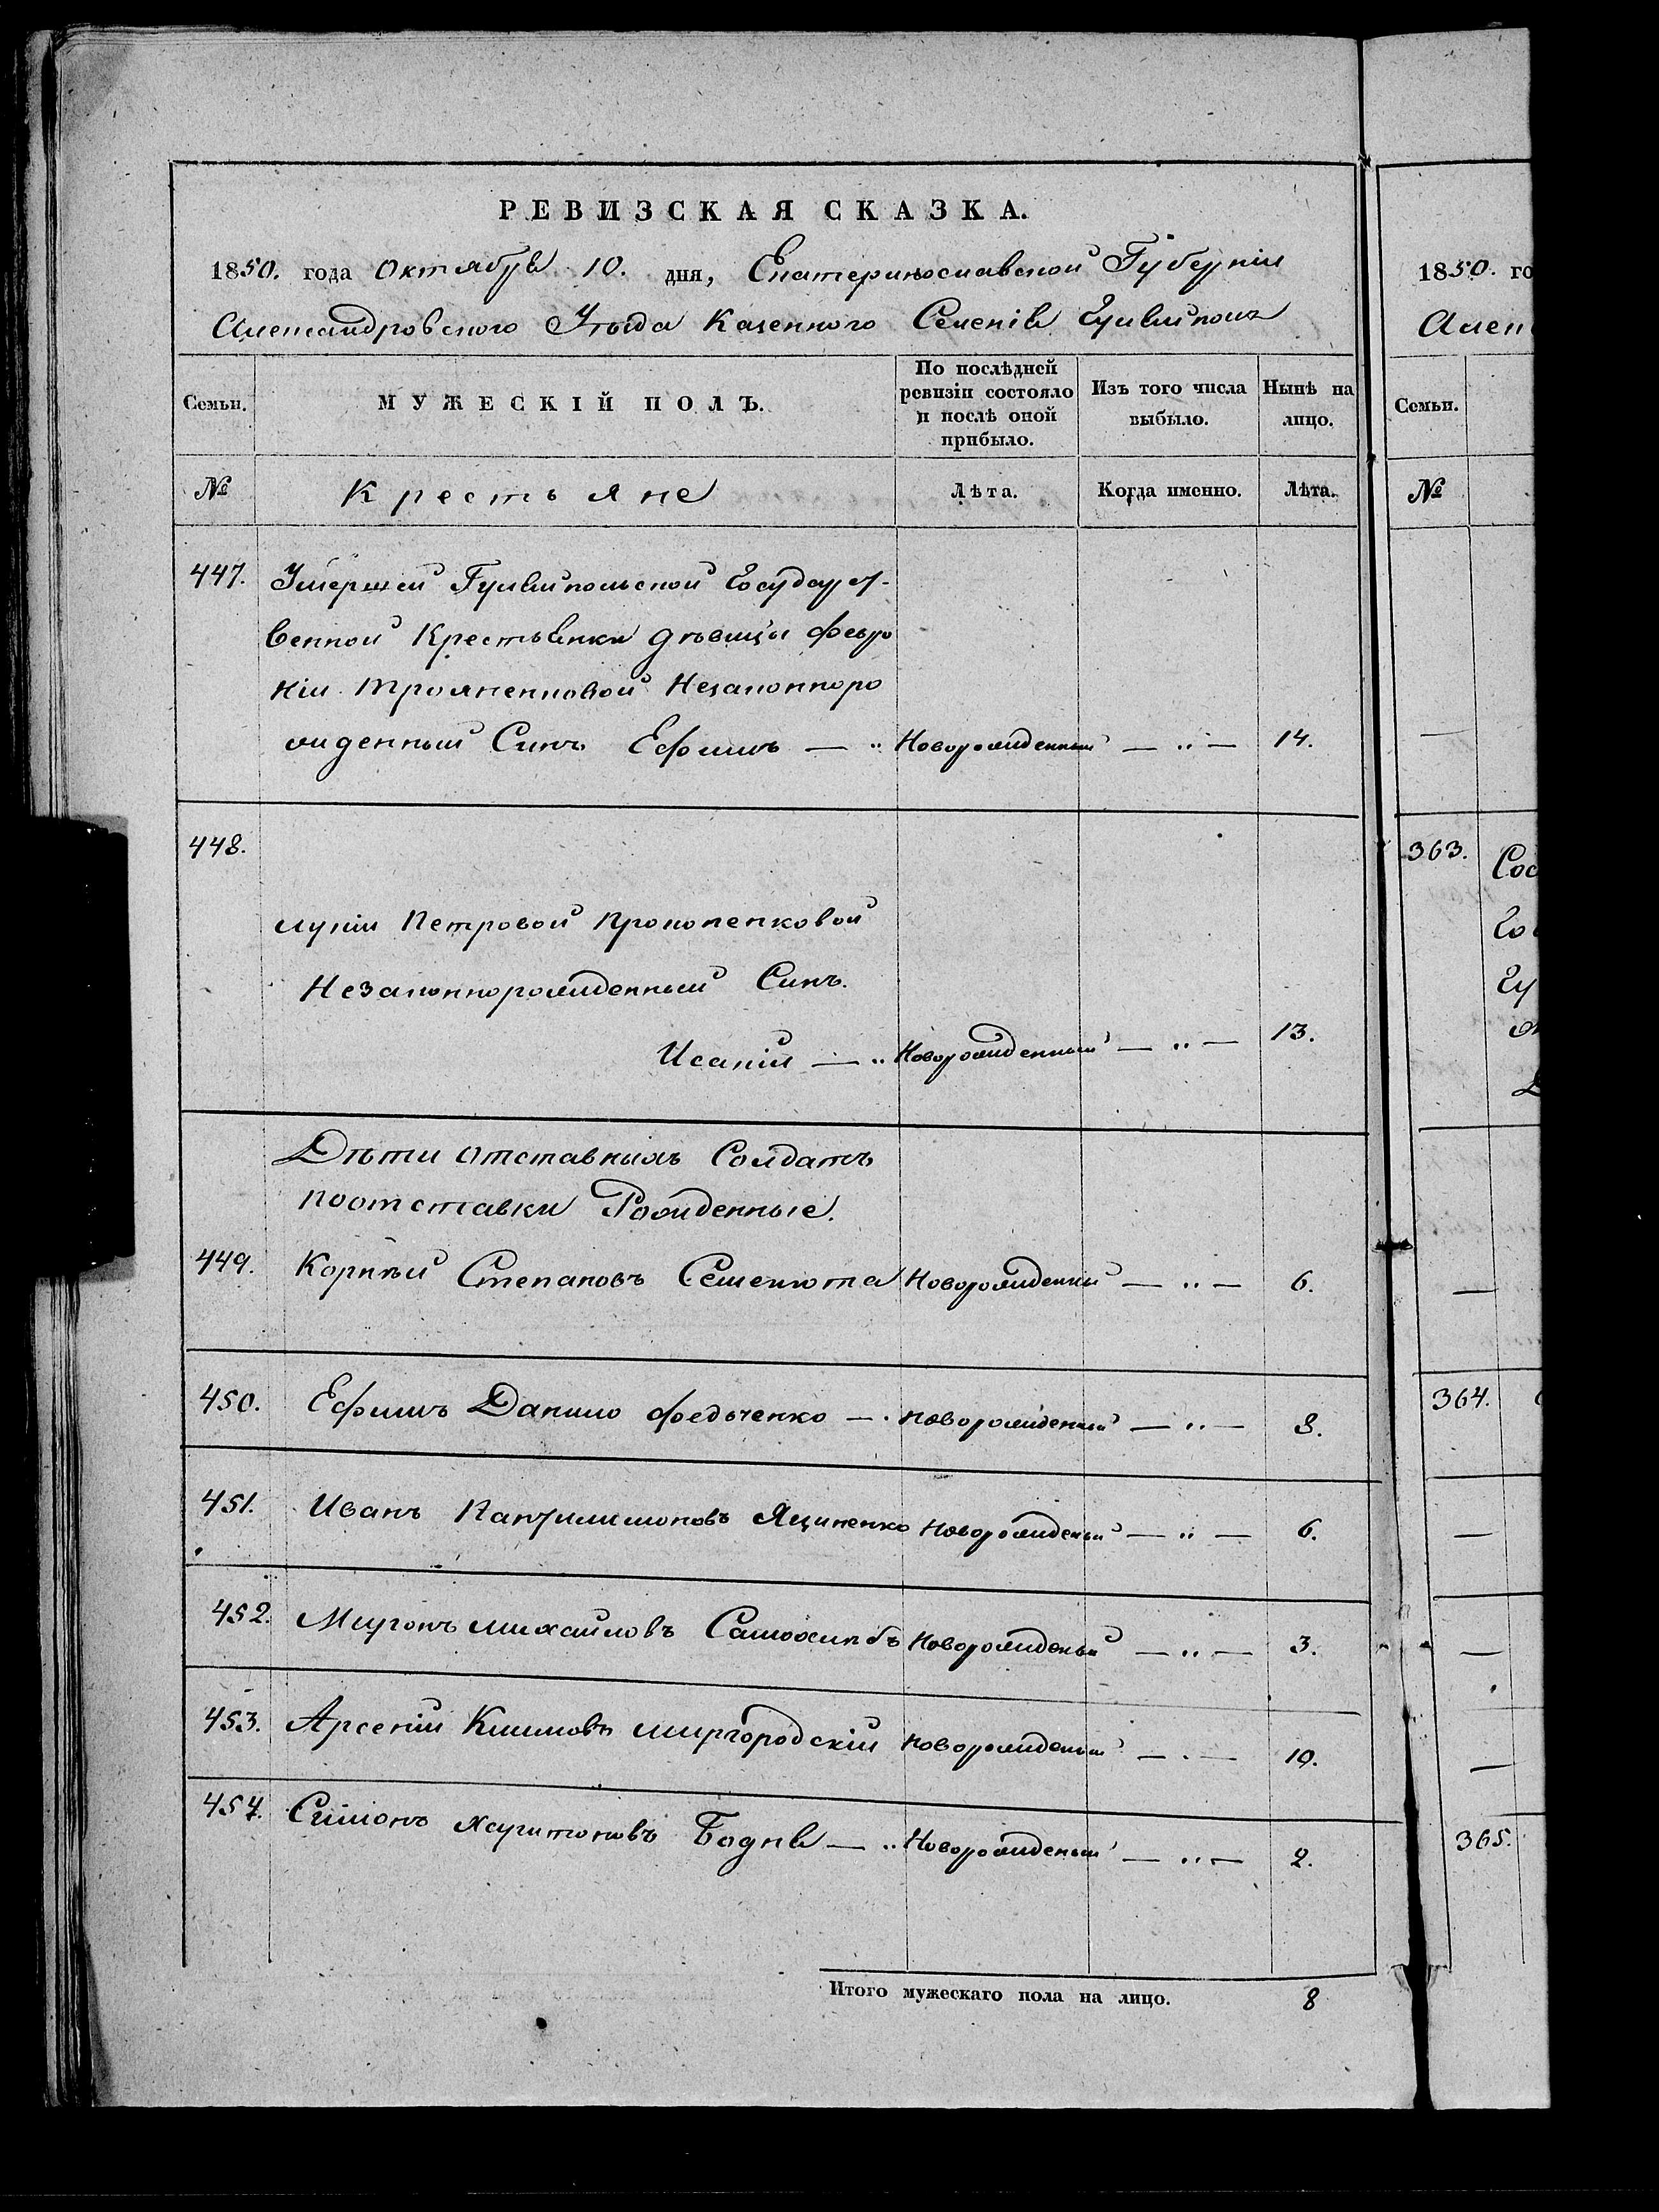 РЕВИЗСКАЯ СКАЗКА.
1850. года Октября 10. дня, Екатеринославской Губерніи
Александровского Уѣзда Казенного Селенія Гуляйполя
Семьи. МУЖЕСКІЙ ПОЛЪ. По послѣдней ревизіи состояло и послѣ оной прибыло. Изъ того числа выбыло. Нынѣ на лицо.
№ Крестьяне Лѣта. Когда именно. Лѣта.
447. Умершей Гуляйпольской Государст-
венной Крестьянки дѣвицы Февро
ніи Трояненковой Незаконноро
жденный Синъ Ефимъ — „ Новорожденный — „ — 14.
448.
Лукіи Петровой Прокопенковой
Незаконнорожденный Синъ.
Исакій — „ Новорожденный — „ — 13.
Дѣти отставныхъ Солдатъ
поотставки Рожденные.
449. Корнѣй Степановъ Семенюта Новорожденний — „ — 6.
450. Ефимъ Данило Федченко — . Новорожденный — „ — 8.
451. Иванъ Пантилимоновъ Яциненко Новорожденый — „ — 6.
452. Миронъ Михайловъ Самохинъ Новорожденый — „ — 3.
453. Арсеній Климовъ Миргородскій Новорожденый — . — 10.
454. Симонъ Харитоновъ Бодня — „ Новорожденый — „ — 2.
Итого мужескаго пола на лицо. 8
1850. го
Алек
Семьи.
№
—
363. Сос
Го
Гу
—
364.
—
—
—
365.